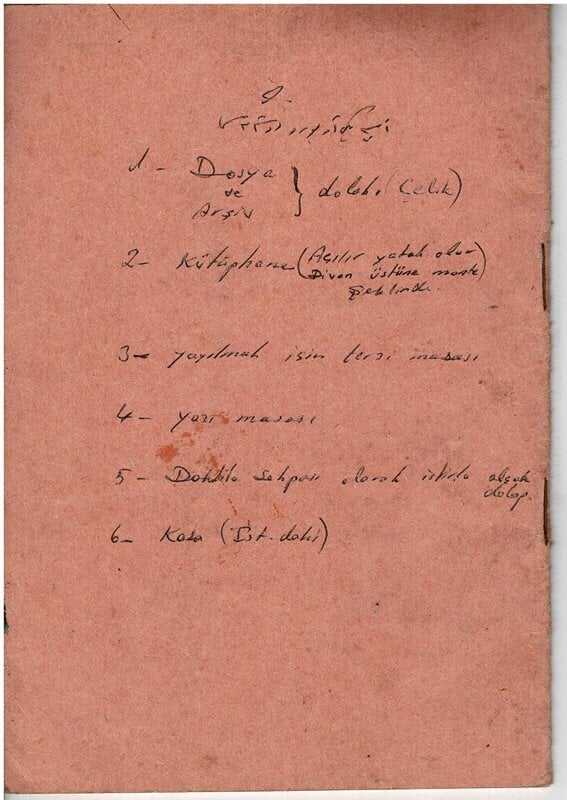 1 - Dosya
ve
Arşiv } dolabı (Çelik)
2- Kütüphane (Açılır yatak olur
Divan üstüne monte)
Şeklinde.
3- yayılmak için terzi masası
4- yazı masası
5- Daktilo Sehpası olarak iskele alçak
dolap.
6- Kasa (İst. daki)